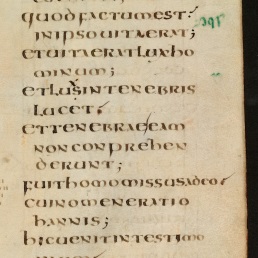 quodfactumest·
inipsouitaerat;
etuitaeratluxho
minum;
etluxintenebris
lucet·
ettenebraeeam
nonconprehen
derunt;
fuithomomissusadeo
cuinomeneratio
hannis;
hicuenitintestimo